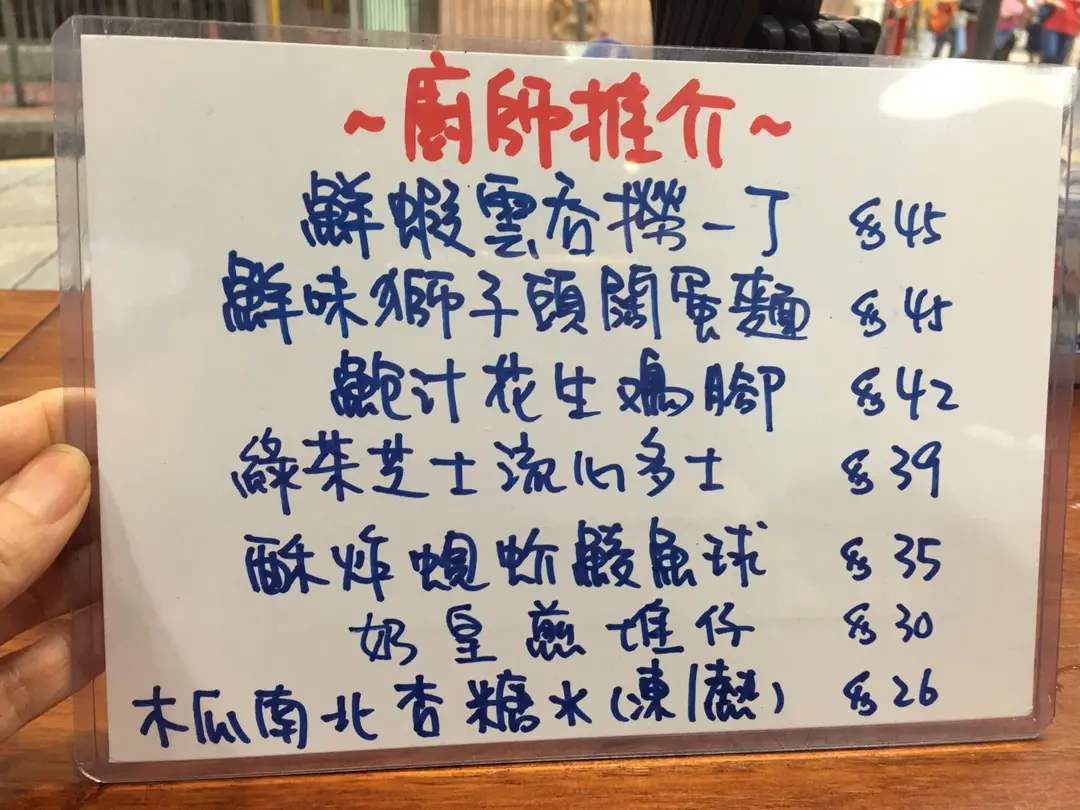 ~廚師推介~
鮮蝦雲吞撈一丁 $45
鮮味獅子頭闊蛋麵 $45
鮑汁花生鳮腳 $42
綠茶芝士流心多士 $39
酥炸蜆蚧鯪魚球 $35
奶皇煎堆仔 $30
木瓜南北杏糖水(凍/熱) $26